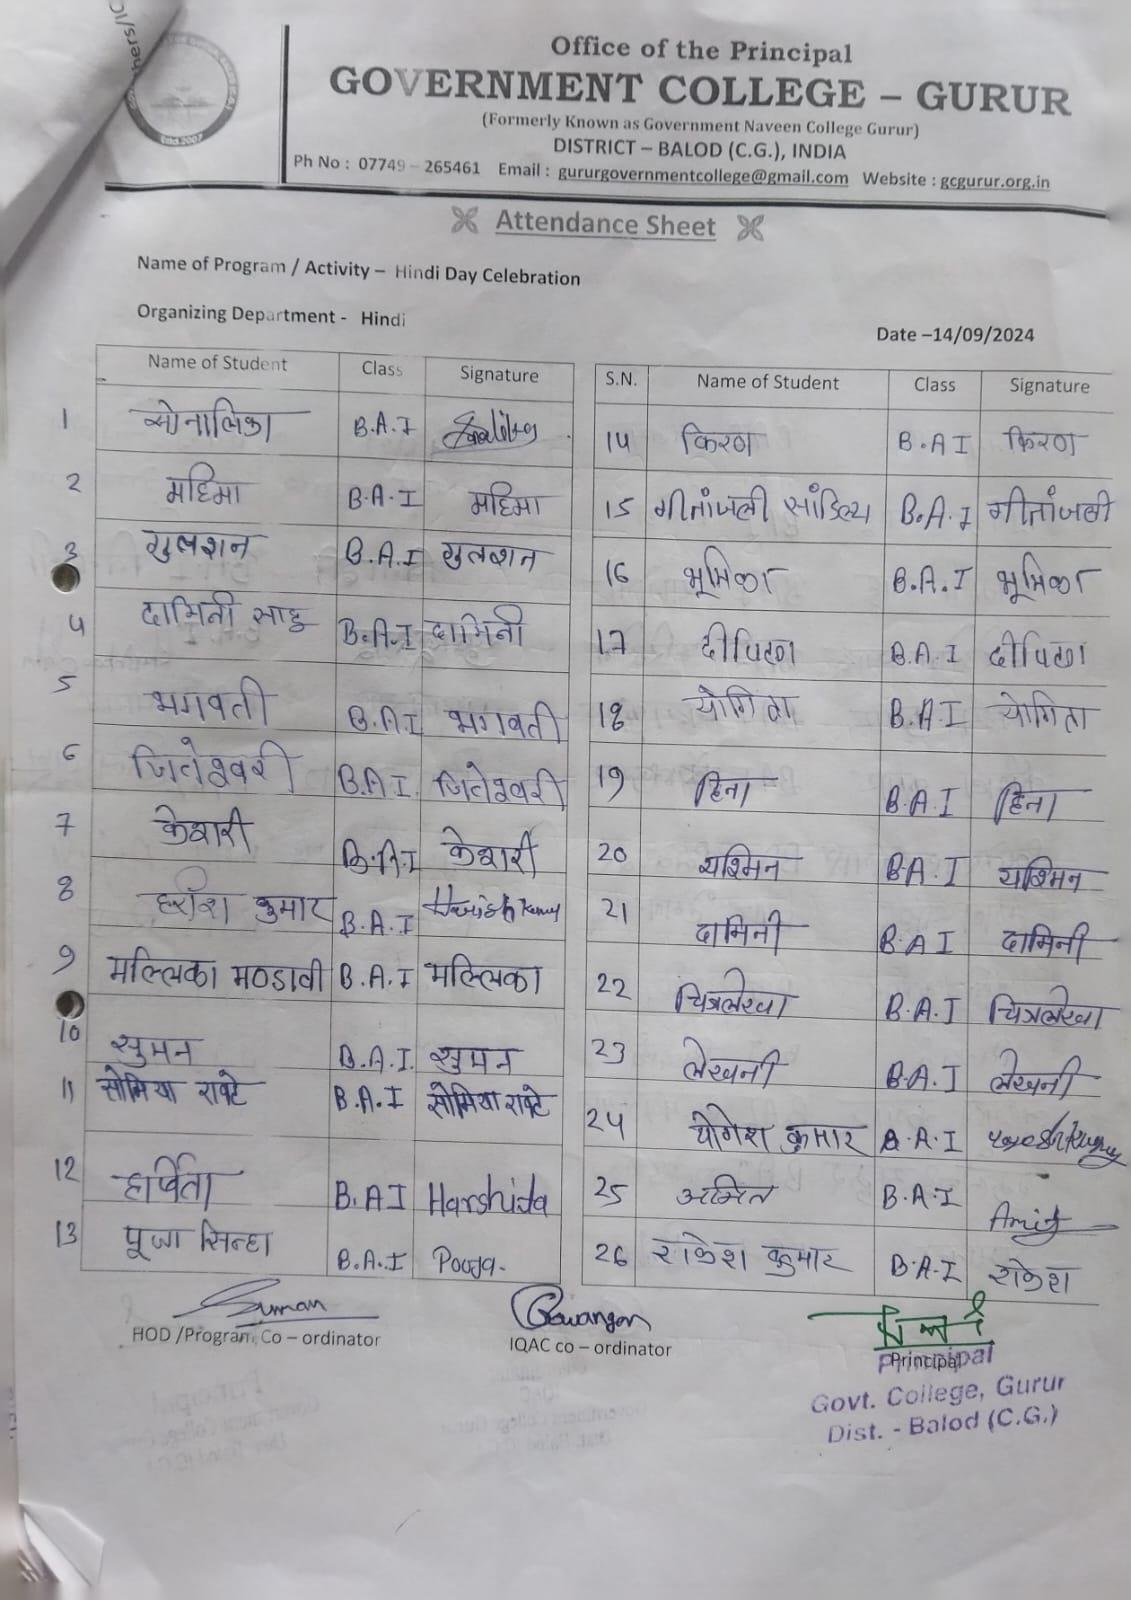 Office of the Principal
GOVERNMENT COLLEGE – GURUR
(Formerly Known as Government Naveen College Gurur)
DISTRICT – BALOD (C.G.), INDIA
Ph No : 07749 – 265461 Email : gururgovernmentcollege@gmail.com Website : gcgurur.org.in
Estd.2007
Attendance Sheet
Name of Program / Activity – Hindi Day Celebration
Organizing Department - Hindi
Date –14/09/2024
Name of Student Class Signature
1 सोनालिका B.A.I
2 महिमा B.A.I महिमा
3 गुलशन B.A.I गुलशन
4 दामिनी साहू B.A.I दामिनी
5 भगवती B.A.I भगवती
6 जितेश्वरी B.A.I. जितेश्वरी
7 केशरी B.A.I केशरी
8 हरीश कुमार B.A.I Harish Kumar
9 मल्लिका मण्डावी B.A.I मल्लिका
10 सुमन B.A.I. सुमन
11 सोमिया रावटे B.A.I सोमिया रावटे
12 हर्षिता B.A I Harshida
13 पूजा सिन्हा B.A.I Pooja.
S.N. Name of Student Class Signature
14 किरण B.A I किरण
15 गीतांजली सांडिल्य B.A.I गीतांजली
16 भूमिका B.A.I भूमिका
17 दीपिका B.A.I दीपिका
18 योगिता B.A I योगिता
19 हिना B.A.I हिना
20 यश्मिन B.A.I यश्मिन
21 दामिनी B.A I दामिनी
22 चित्रलेखा B.A.I चित्रलेखा
23 लेखनी B.A.I लेखनी
24 योगेश कुमार B.A.I
25 अमित B.A.I Amit
26 राकेश कुमार B.A.I राकेश
Suman
HOD /Program Co – ordinator
IQAC co – ordinator
Principal
Principal
Govt. College, Gurur
Dist. - Balod (C.G.)